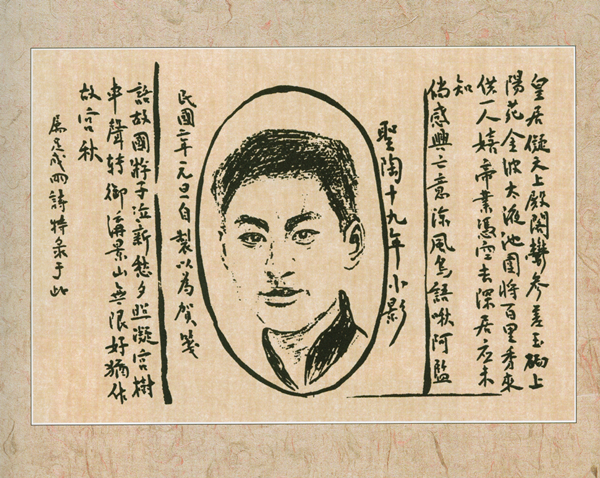 皇居儗天上殿闕鬱參差玉砌上
陽花金波太液池園將百里秀來
供一人嬉帝業憑空去深居應未
知
倘感興亡意涼風鳥語啾阿監
聖陶十九年小影
民國二年元旦自製以為賀箋
話故國游子泣新愁夕照凝宮樹
車聲轉御溝景山無限好猶作
故宮秋
足成詩特錄于此